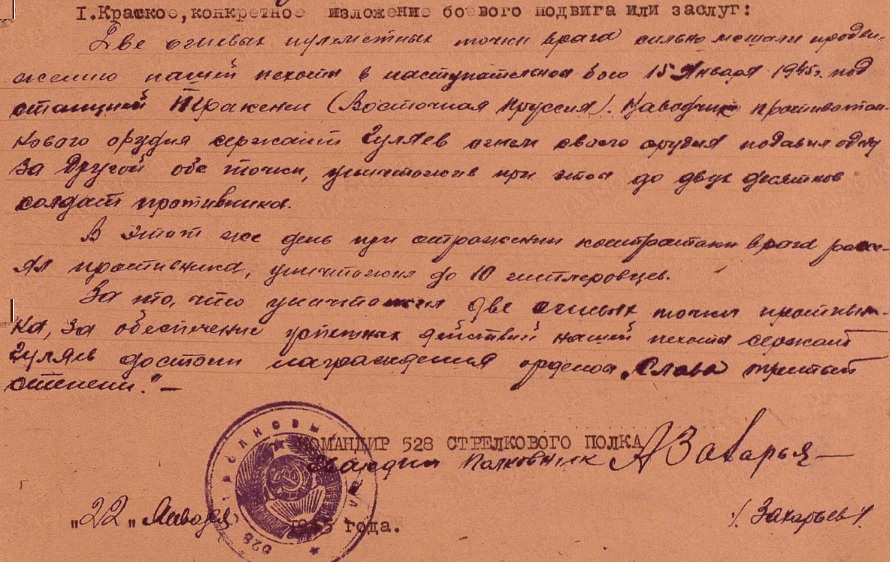 I.Краткое, конкретное изложение боевого подвига или заслуг:
Две огневых пулеметных точки врага сильно мешали продви-
жению нашей пехоты в наступательном бою 15 января 1945г. под
станцией (Восточная Пруссия). Наводчик противотан-
кового орудия сержант Гуляев огнем своего орудия подавил одну
за другой обе точки, уничтожив при этом до двух десятков
солдат противника.
В этот же день при отражении контратаки врага рассе-
ял противника, уничтожил до 10 гитлеровцев.
За то, что уничтожил две огневых точки противни-
ка, за обеспечение успешных действий нашей пехоты сержант
Гуляев достоин награждения орденом „Слава" третьей
степени."—
КОМАНДИР 528 СТРЕЛКОВОГО ПОЛКА
Гвардии Полковник АЗахарья
„22" Января 1945 года.
/Захарьев/.
528